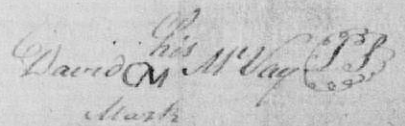 his
David M McVay
Mark